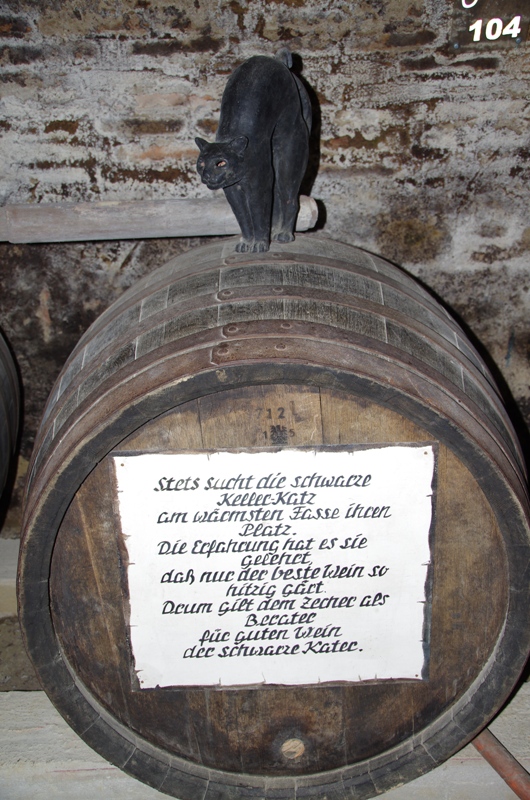 104
712 L
Stets sucht die schwarze
Keller-Katz
am wärmsten Fasse ihren
Platz.
Die Erfahrung hat es sie
gelehrt,
daß nur der beste Wein so
hitzig gärt.
Drum gilt dem Zecher als
Berater
für guten Wein
der schwarze Kater.